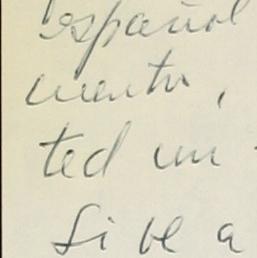 español
mento,
ted un
Si ve a